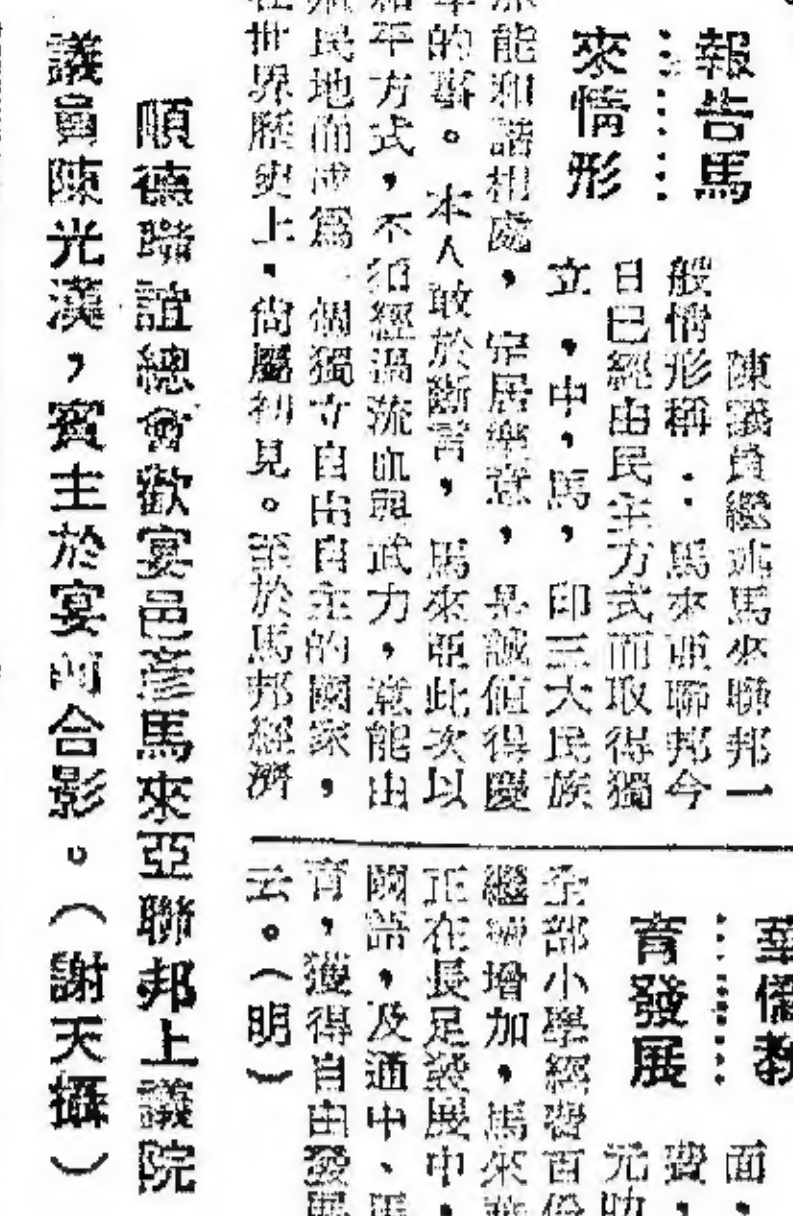 報告馬
來情形
陳議員繼述馬來聯邦一
般情形稱：馬來亞聯邦今
日已經由民主方式而取得獨
立，中，馬，印三大民族
能和諧相處，定居樂意，誠值得慶
的事。本人敢於斷言，馬來亞此次以
和平方式，不須經過流血與武力，竟能由
殖民地而成為一個獨立自由自主的國家，
在世界歷史上，尚屬初見。至於馬邦經濟
華僑教
育發展
面，
費，
元助
全部小學經費百份
繼續增加，馬來亞
正在長足發展中，
國語，及通中、馬
育，獲得自由發展
云。（明）
順德聯誼總會歡宴邑彥馬來亞聯邦上議院
議員陳光漢，賓主於宴前合影。（謝天攝）